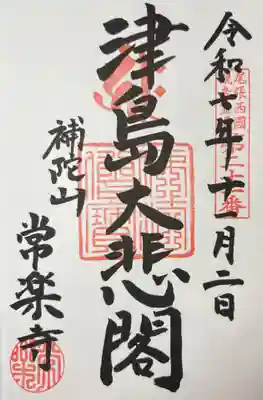 令和七年十一月二日
津島大悲閣
補陀山
常楽寺